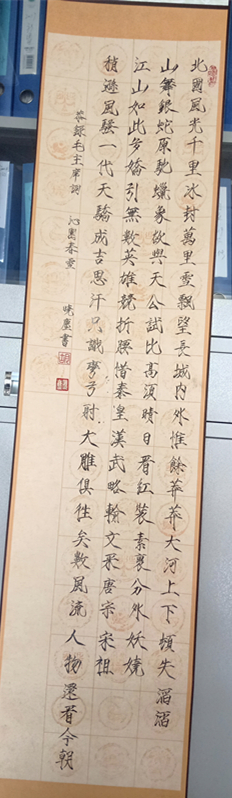 北國風光千里冰封萬里雪飄望長城内外惟餘莽莽大河上下頓失滔滔
山舞銀蛇原馳蠟象欲與天公試比高須晴日看紅裝素裹分外妖嬈
江山如此多嬌引無數英雄競折腰惜秦皇漢武略輸文采唐宗宋祖
稍遜風騷一代天驕成吉思汗只識彎弓射大雕俱往矣數風流人物還看今朝
毛主席詞 沁園春雪 曉塵書